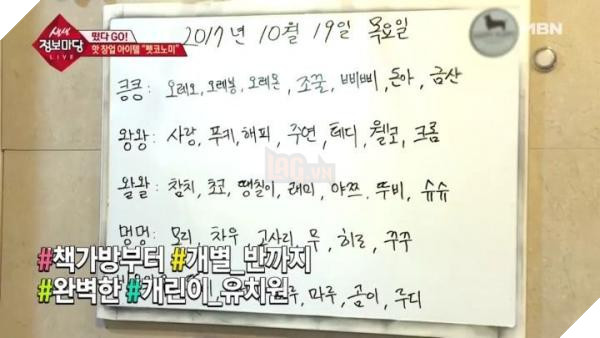 떴다 GO!
새새
정보마당
LIVE
맛 창업 아이템 "펫코노미"
MBN
2017년 10월 19일 목요일
킁킁: 오레오, 오레봉, 오레온, 조꿀, 삐삐, 돈아, 금산
왕왕: 사랑, 푸키, 해피, 주연, 테디, 웰코, 크롬
왈왈: 참치, 초코, 땡칠이, 래미, 야쯔, 뚜비, 슈슈
멍멍: 모리, 차우, 고사리, 무, 히로, 쭈쭈
마루, 곰이, 루디
#책가방부터 #개별_반까지
#완벽한 #개린이_유치원
LAG.VN